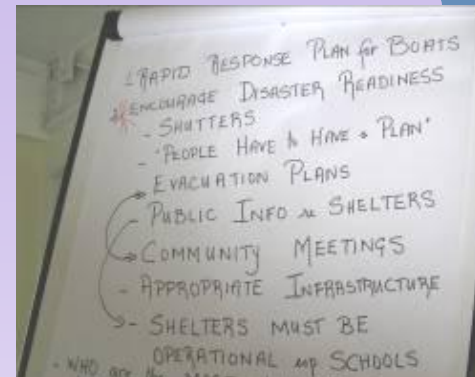 - RAPID RESPONSE PLAN for BOATS
* ENCOURAGE DISASTER READINESS
- SHUTTERS
- "PEOPLE HAVE to HAVE a PLAN"
EVACUATION PLANS
- PUBLIC INFO re SHELTERS
COMMUNITY MEETINGS
- APPROPRIATE INFRASTRUCTURE
- SHELTERS MUST BE
OPERATIONAL SCHOOLS
- WHO are the